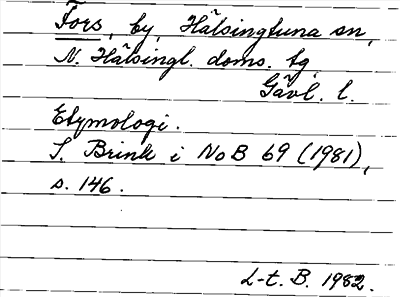 Fors, by, Hälsingtuna sn,
N. Hälsingl. doms. tg
Gävl. l.
Etymologi.
S. Brink i NoB 69 (1981),
s. 146.
L-t. B. 1982.